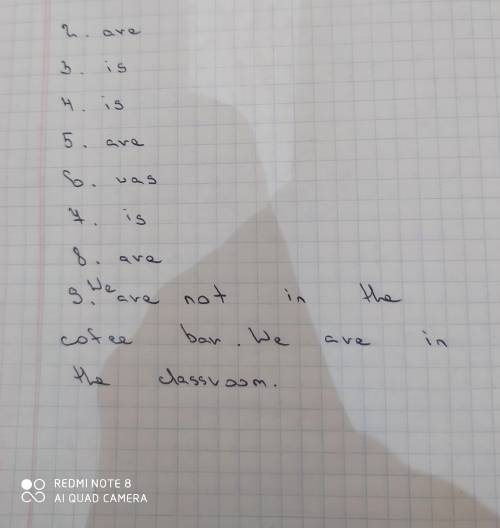 2. are
3. is
4. is
5. are
6. vas
7. is
8. are
9. We are not in the
cofee bar. We are in
the classroom.
REDMI NOTE 8
AI QUAD CAMERA